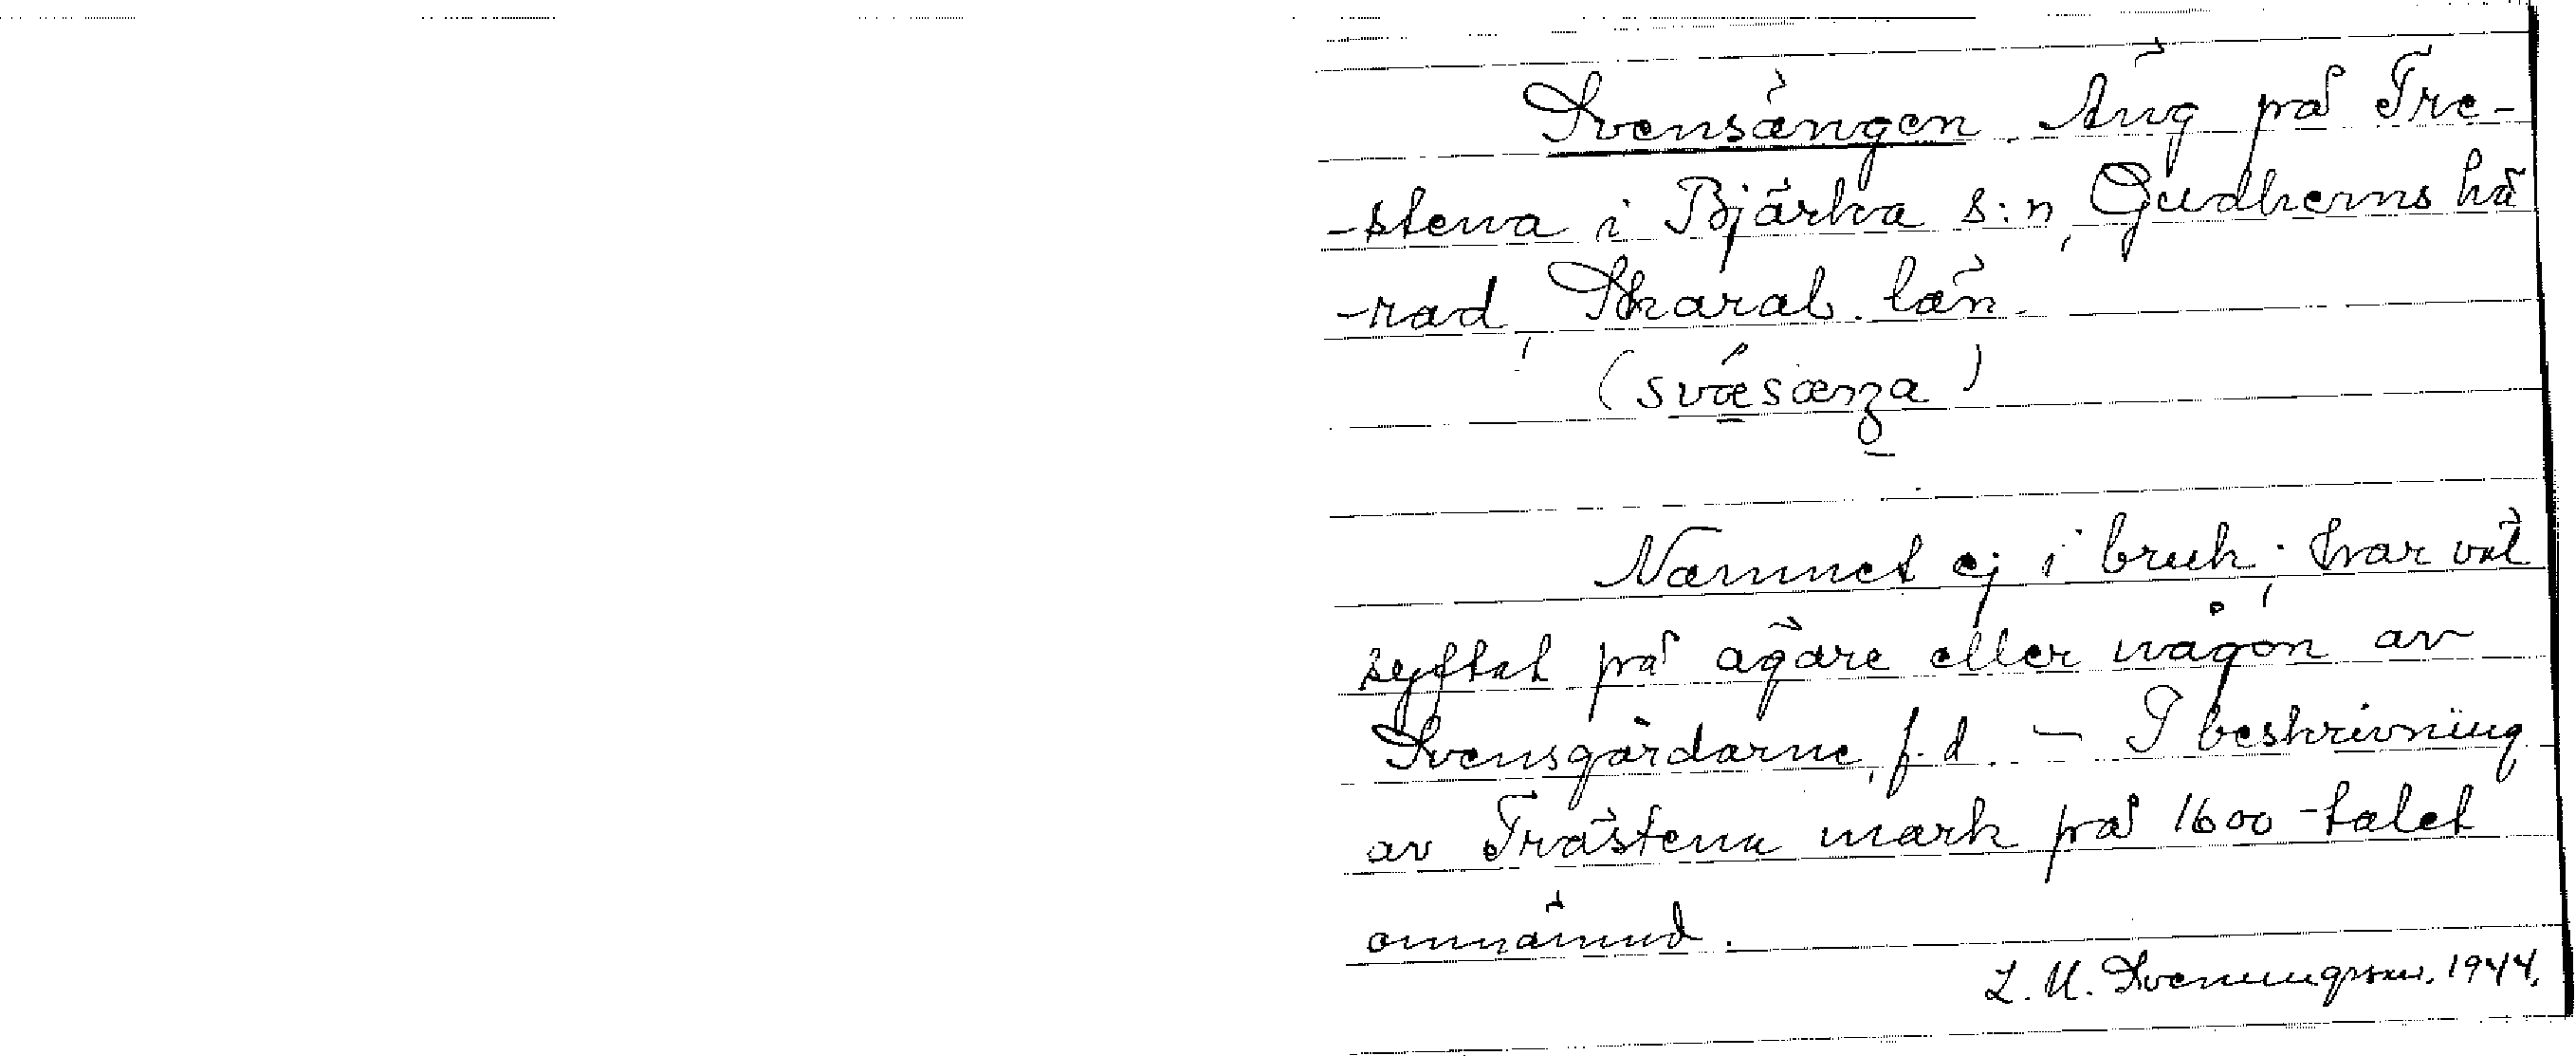 Svensängen. Äng på Tre-
-stena i Bjärka s:n, Gudhems hä
-rad, Skarab. län.
(svǽsænga)
Namnet ej i bruk; har väl
syftat på ägare eller någon av
Svensgårdarne, f. d. - I beskrivning
av Trästena mark på 1600-talet
omnämnd.
L. M. Svenungsson. 1944.